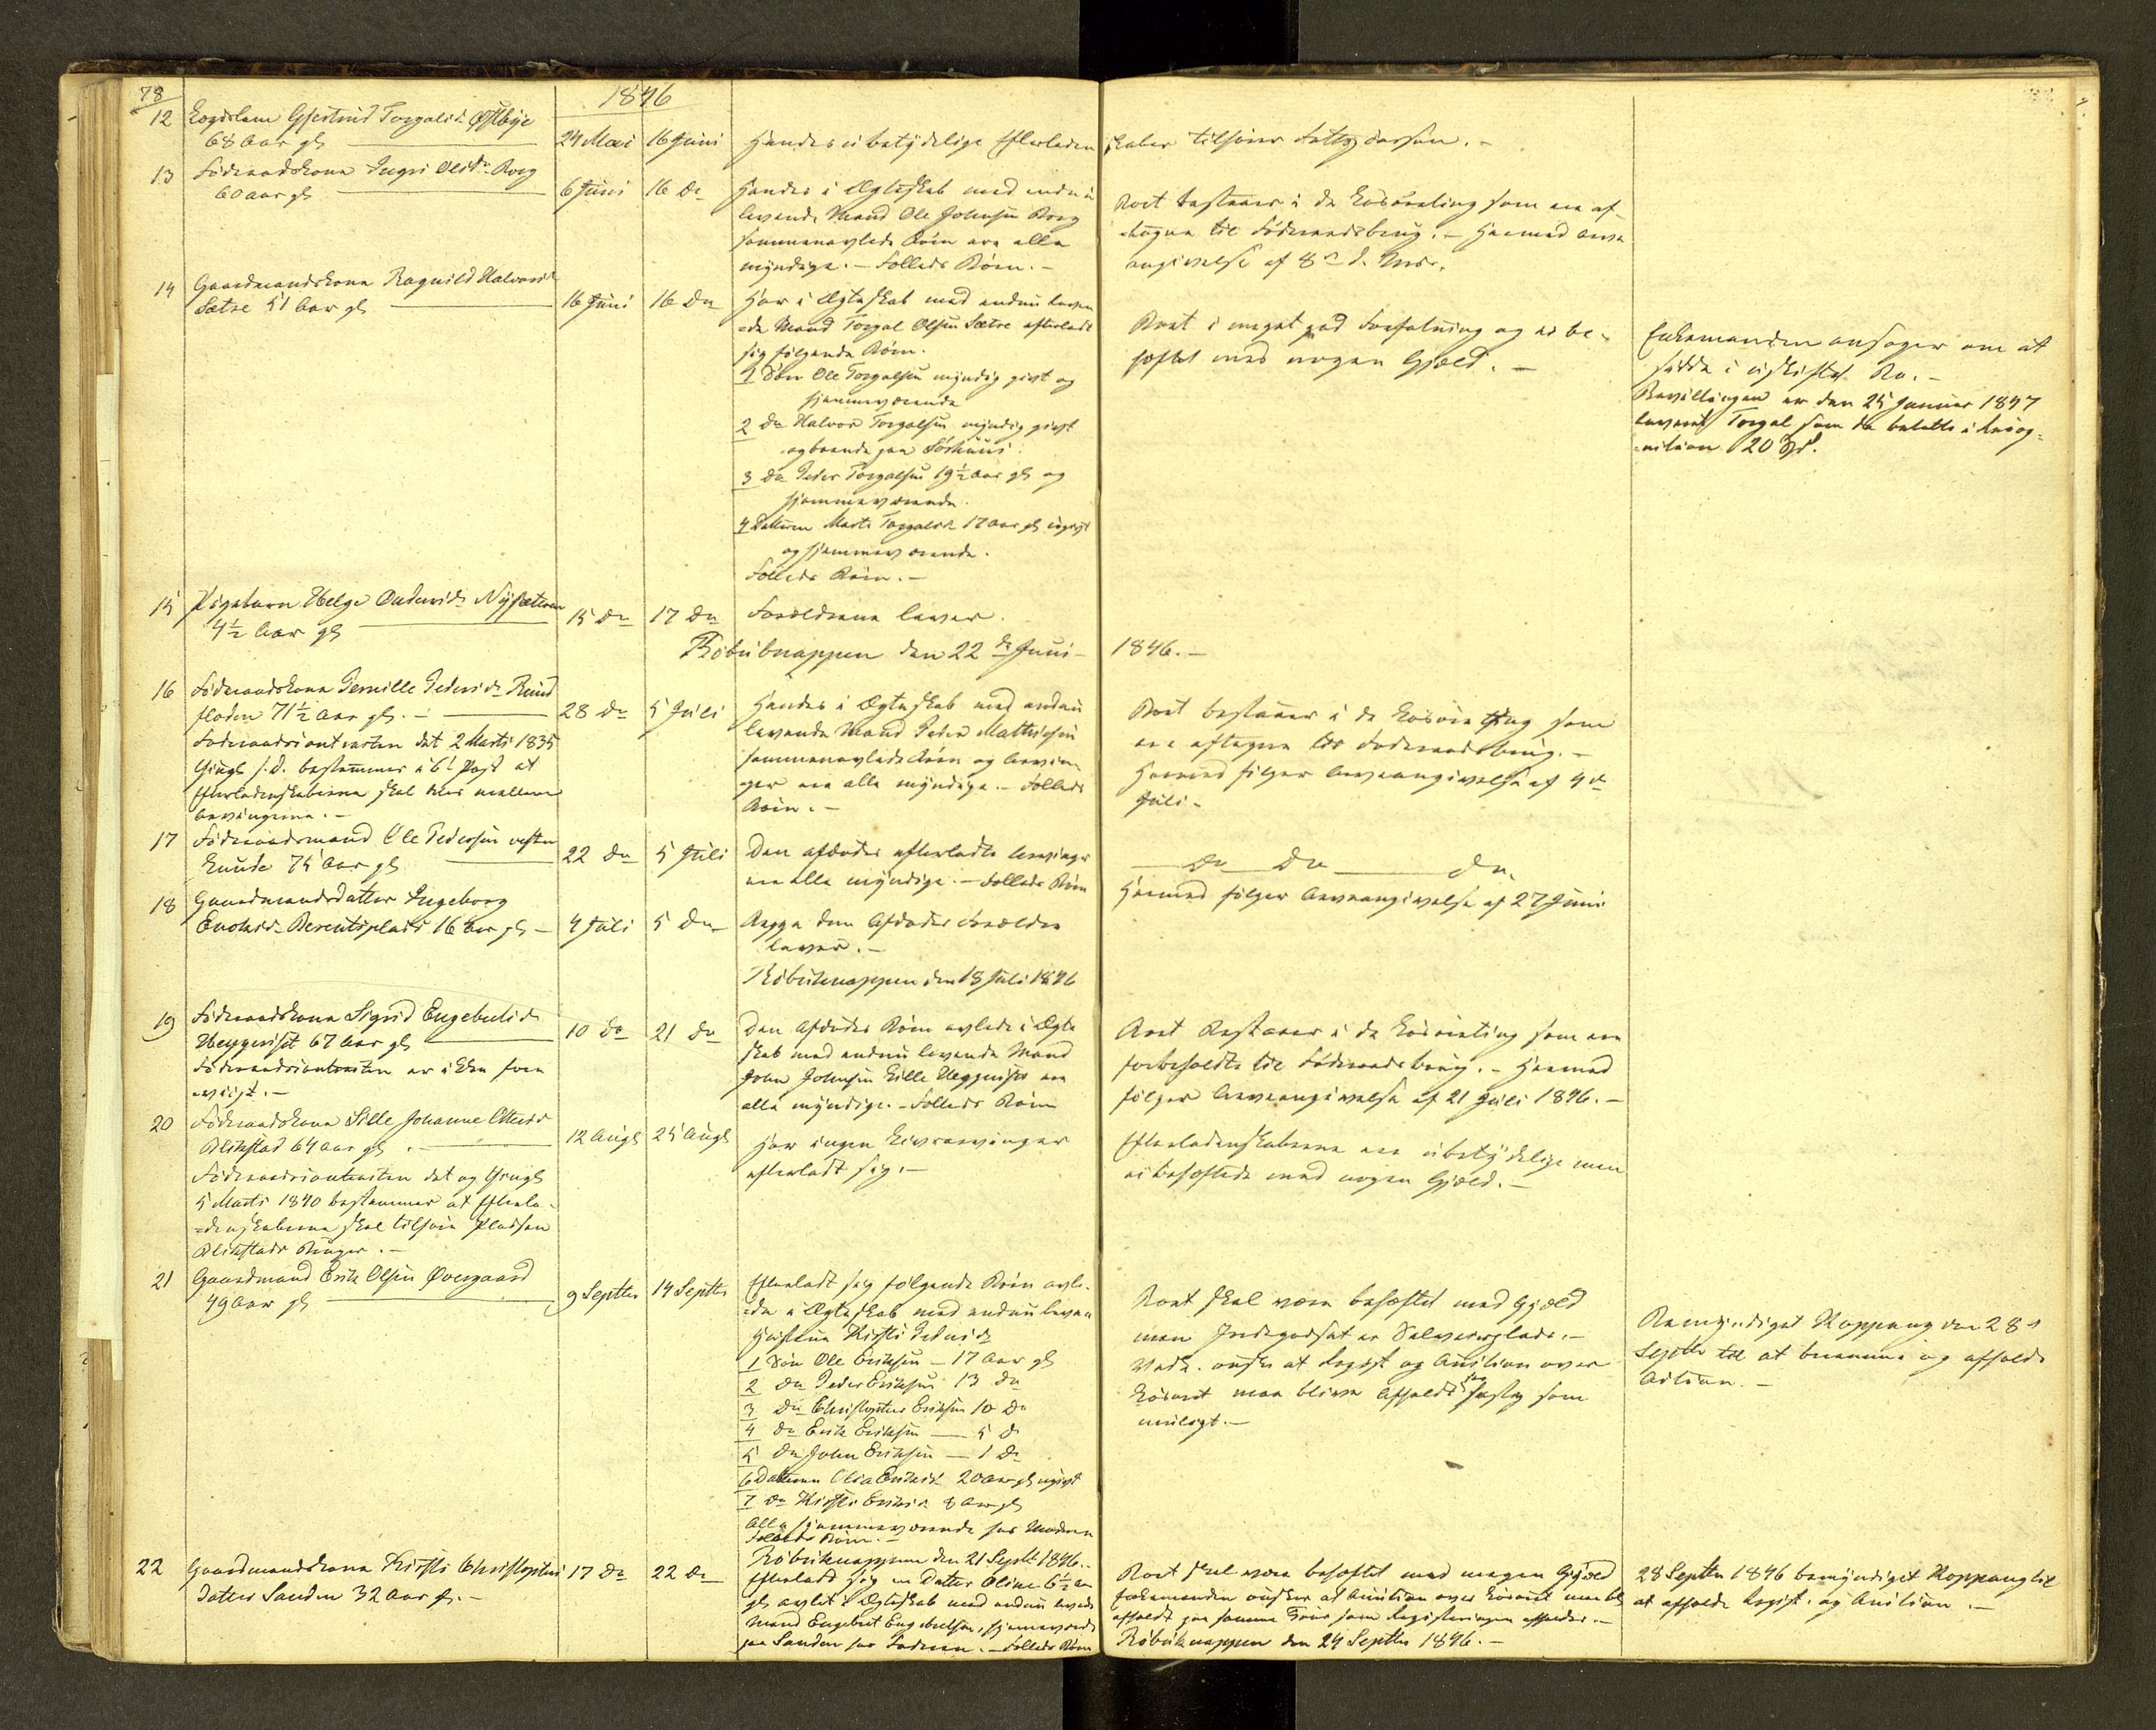 78
1846
12 Gjertrud Torgalsd. Østbye
68 Aar gl
24 Mai 16 Juni Hendes ubetydelige Efterladen
skaber tilfører
13 Føderaadskone Ingri Olsd. Borg
60 aar gl
6 Juni 16 Do Hendes i Ægteskab med endnu
levende Mand Ole Johnsen Borg
sammenavlede Børn ere alle
myndige. - Fælleds Børn. -
Boet bestaaer i de Løsøreting som ere af-
tagne til Føderaadsbrug. - Hermed Arve
angivelse af 8de d. Mds.
14 Gaardmandskone Ragnild Halvorsd
Sætre 51 Aar gl
16 Juni 16 Do Har i Ægteskab med endnu leven
=de Mand Torgal Olsen Sætre efterladt
sig følgende Børn.
1 Søn Ole Torgalsen myndig givt og
hjemmeværende
2 Do Halvor Torgalsen myndig givt
og boende paa Sörhuus.
3 Do Peder Torgalsen 19½ Aar gl og
hjemmeværende
4 Datteren Marte Torgalsd 17 Aar gl ugivt
og hjemmeværende.
Fælleds Børn. -
Boet i meget god Forfatning og ei be-
heftet med nogen Gjæld. -
Enkemanden ansøger om at
sidde i uskiftet Bo. -
Bevillingen er den 25 Januar 1847
leveret Torgal som da betalte i Recog-
=nition 20 Spd.
15 Pigebarn Helge Andersd. Nysæteren
4½ Aar gl
15 Do 17 Do Forældrene lever.
den 22de Juni 1846. -
16 Føderaadskone Pernille Pedersd. Rund
floden 71½ Aar gl. -
Foderaadscontracten dat 2 Marts 1835
bestemmer i 6te Post at
Efterladenskaberne skal deles mellem
Arvingerne. -
28 Do 5 Juli Hendes i Ægteskab med endnu
levende Mand Peder Mathiesen
sammenavlede Børn og Arvin-
ger ere alle myndige. - Fælleds
Børn. -
Boet bestaaer i de Løsøreting som
ere aftagne til Føderaadsbrug. -
Hermed følger Arveangivelse af 4de
Juli. -
17 Føderaadsmand Ole Pedersen
75 Aar gl
22 Do 5 Juli Den afdødes efterladte Arvinger
ere alle myndige. - Fælleds Børn
Do Do Do
Hermed følger Arveangivelse af 27 Juni
18 Gaardmandsdatter Ingeborg
Enoksd. Berentsplads 16 Aar gl -
4 Juli 5 Do Begge den Afdødes Forældre
lever. -
den 18 Juli 1846
19 Føderaadskone Sigrid Engebretsd
67 Aar gl
Føderaadscontracten er ikke frem
=viist. -
10 Do 21 Do Den Afdødes Børn avlede i Ægte
skab med endnu levende Mand
John Johnsen Lille ere
alle myndige. - Fælleds Børn
Boet Bestaaer i de Løsøreting som ere
forbeholdte til Føderaadsbrug. - Hermed
følger Arveangivelse af 21 Juli 1846. -
20 Føderaadskone Sille Johanne
Blikstad 64 Aar gl. -
Föderaadscontracten dat og
5 Marts 1840 bestemmer at Efterla-
=denskaberne skal tilfalde Pladsen
Blikstads Bruger. -
12 Augs 25 Augs Har ingen Livsarvinger
efterladt sig. -
Efterladenskaberne ere ubetydelige men
ei behæftede med nogen Gjæld. -
21 Gaardmand Erik Olsen Øvergaard
49 Aar gl
9 Septbr 14 Septbr Efterladt sig følgende Børn avle-
=de i Ægteskab med endnu leven
Hustrue Kirsti Pedersd
1 Søn Ole Eriksen - 17 Aar gl
2 Do Peder Eriksen 13 Do
3 Do Christopher Eriksen 10 Do
4 Do Erik Eriksen - 5 D
5 Do John Eriksen - 1 Do
6 Datteren Olia Eriksd 20 Aar gl ugivt
7 Do Kirsti Eriksd 8 Aar gl
Alle hjemmeværende hos Moderen
Fælleds Børn. -
den 21 Septbr 1846. -
Boet skal være behæftet med Gjæld
men Jordegodset er Selveierplads. -
Enken ønsker at Regist og Auction over
Løsøret maa blive afholdt saa hastig som
muligt. -
Bemyndiget Koppang den 28de
Septbr til at beramme og afholde
Action. -
22 Gaardmandskone Kirsti Christophers
datter Sanden 32 Aar gl. -
17 Do 22 Do Efterladt sig en Datter Oline 6½ Aar
gl avlet i Ægteskab med endnu levende
Mand Engebret Engebretsen, hjemmeværende
paa Sanden hos Faderen. - Fælleds Børn
Boet skal være behæftet med megen Gjæld
Enkemanden ønsker at Auction over Løsöret maa bli
afholdt paa samme Tour som Registeringen afholdes. -
den 24 Septbr 1846. -
28 Septbr 1846 bemyndiget Koppang til
at afholde Regist. og Auction. -